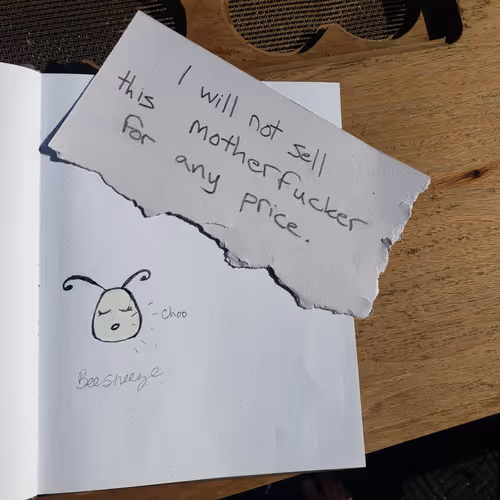 I will not sell
this motherfucker
for any price.
choo
Beesneeze